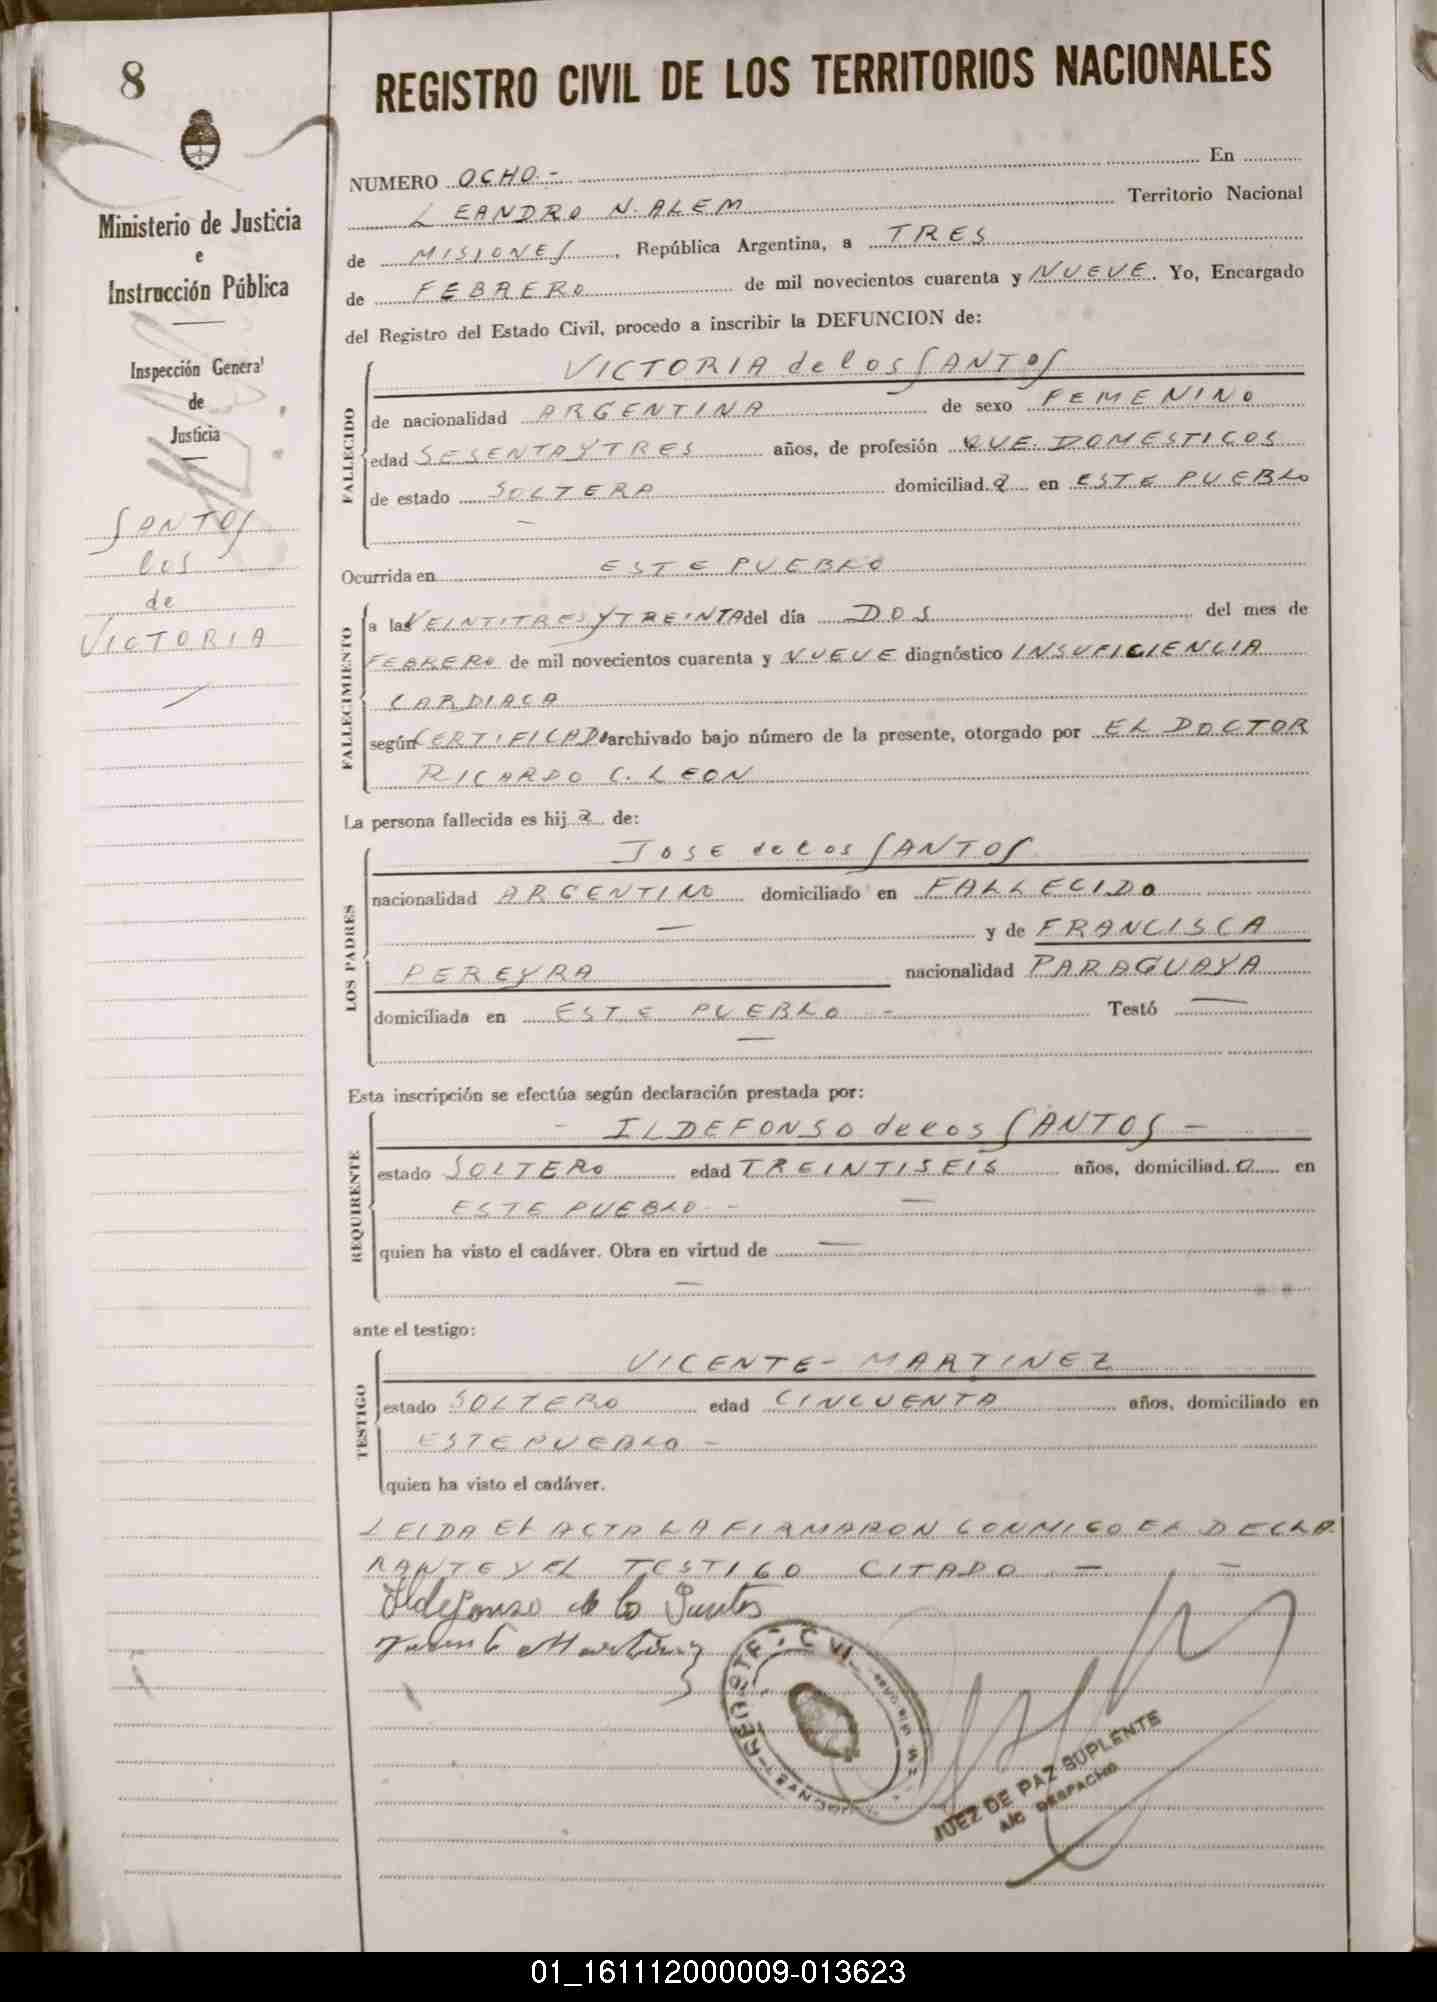 8
REGISTRO CIVIL DE LOS TERRITORIOS NACIONALES
Ministerio de Justicia
e
Instrucción Pública
Inspección General
de
Justicia
SANTOS
los
de
VICTORIA
NUMERO OCHO.- En
LEANDRO N. ALEM Territorio Nacional
de MISIONES, República Argentina, a TRES
de FEBRERO de mil novecientos cuarenta y NUEVE. Yo, Encargado
del Registro del Estado Civil, procedo a inscribir la DEFUNCION de:
FALLECIDO
VICTORIA de los SANTOS
de nacionalidad ARGENTINA de sexo FEMENINO
edad SESENTA Y TRES años, de profesión QUE. DOMESTICOS
de estado SOLTERA domiciliad.a en ESTE PUEBLO
Ocurrida en ESTE PUEBLO
FALLECIMIENTO
a las VEINTITRES Y TREINTA del día DOS del mes de
FEBRERO de mil novecientos cuarenta y NUEVE diagnóstico INSUFICIENCIA
CARDIACA
según CERTIFICADO archivado bajo número de la presente, otorgado por EL DOCTOR
RICARDO C. LEON
La persona fallecida es hij.a de:
LOS PADRES
JOSE de los SANTOS
nacionalidad ARGENTINO domiciliado en FALLECIDO
— y de FRANCISCA
PEREYRA nacionalidad PARAGUAYA
domiciliada en ESTE PUEBLO - Testó —
—
Esta inscripción se efectúa según declaración prestada por:
REQUIRENTE
- ILDEFONSO de los SANTOS -
estado SOLTERO edad TREINTISEIS años, domiciliad.o en
ESTE PUEBLO - —
quien ha visto el cadáver. Obra en virtud de —
—
ante el testigo:
TESTIGO
VICENTE - MARTINEZ
estado SOLTERO edad CINCUENTA años, domiciliado en
ESTE PUEBLO -
quien ha visto el cadáver.
LEIDA EL ACTA LA FIRMARON CONMIGO EL DECLA
RANTE Y EL TESTIGO CITADO — —
Ildefonso de lo Santos
Martinez
JUEZ DE PAZ SUPLENTE
A/C DESPACHO
01_161112000009-013623